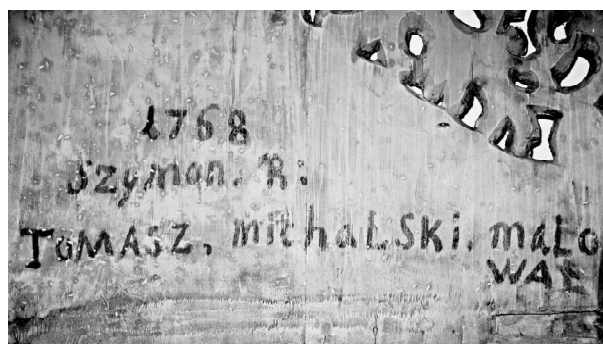 1768
Szyman. R:
TOMASZ, michaLSKi. maLo
WAŁ